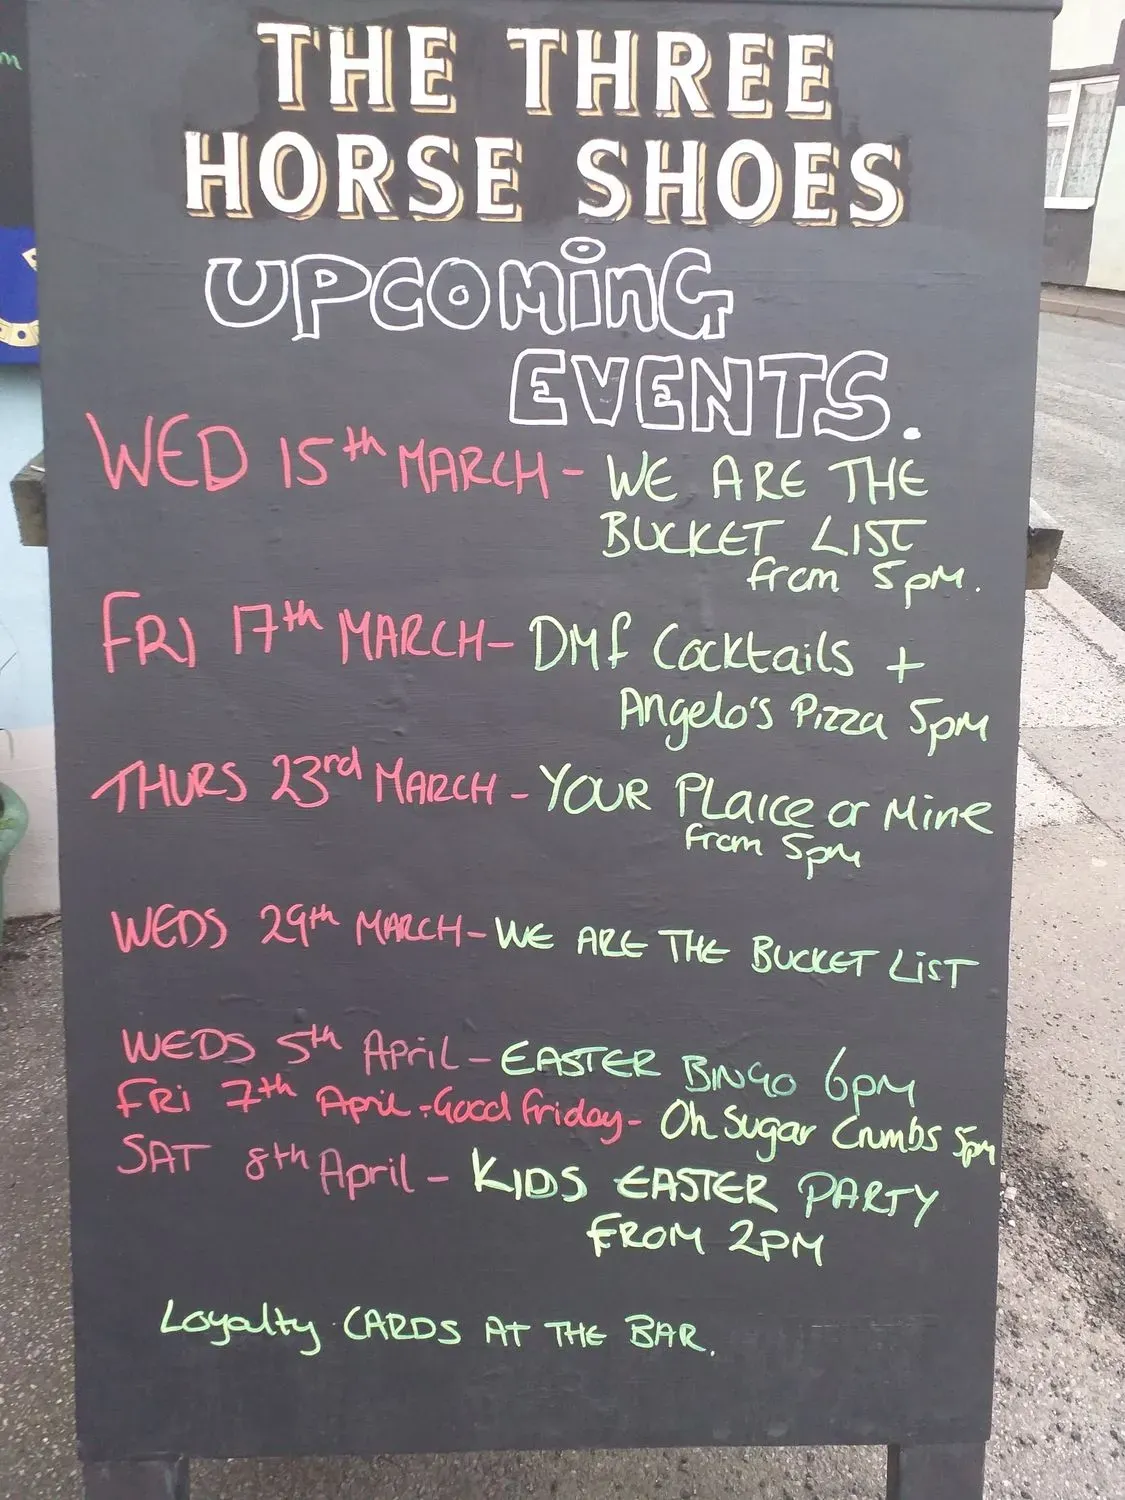 THE THREE
HORSE SHOES
UPCOMING
EVENTS.
WED 15th MARCH - WE ARE THE
BUCKET LIST
from 5pm.
FRI 17th MARCH - DMF Cocktails +
Angelo's Pizza 5pm
THURS 23rd MARCH - YOUR PLAICE or Mine
from 5pm
WEDS 29th MARCH - WE ARE THE BUCKET LIST
WEDS 5th April - EASTER BINGO 6pm
FRI 7th April - Good Friday - Oh Sugar Crumbs 5pm
SAT 8th April - KIDS EASTER PARTY
FROM 2PM
Loyalty CARDS AT THE BAR.